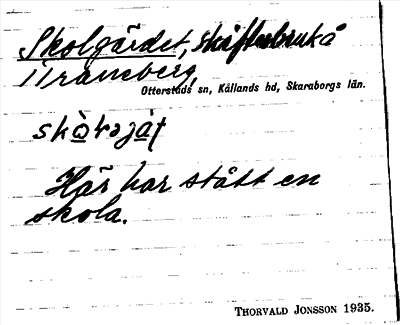 Skolgärdet, skiftesbruk å
Traneberg,
Otterstads sn, Kållands hd, Skaraborgs län.
Här har stått en
skola.
THORVALD JONSSON 1935.